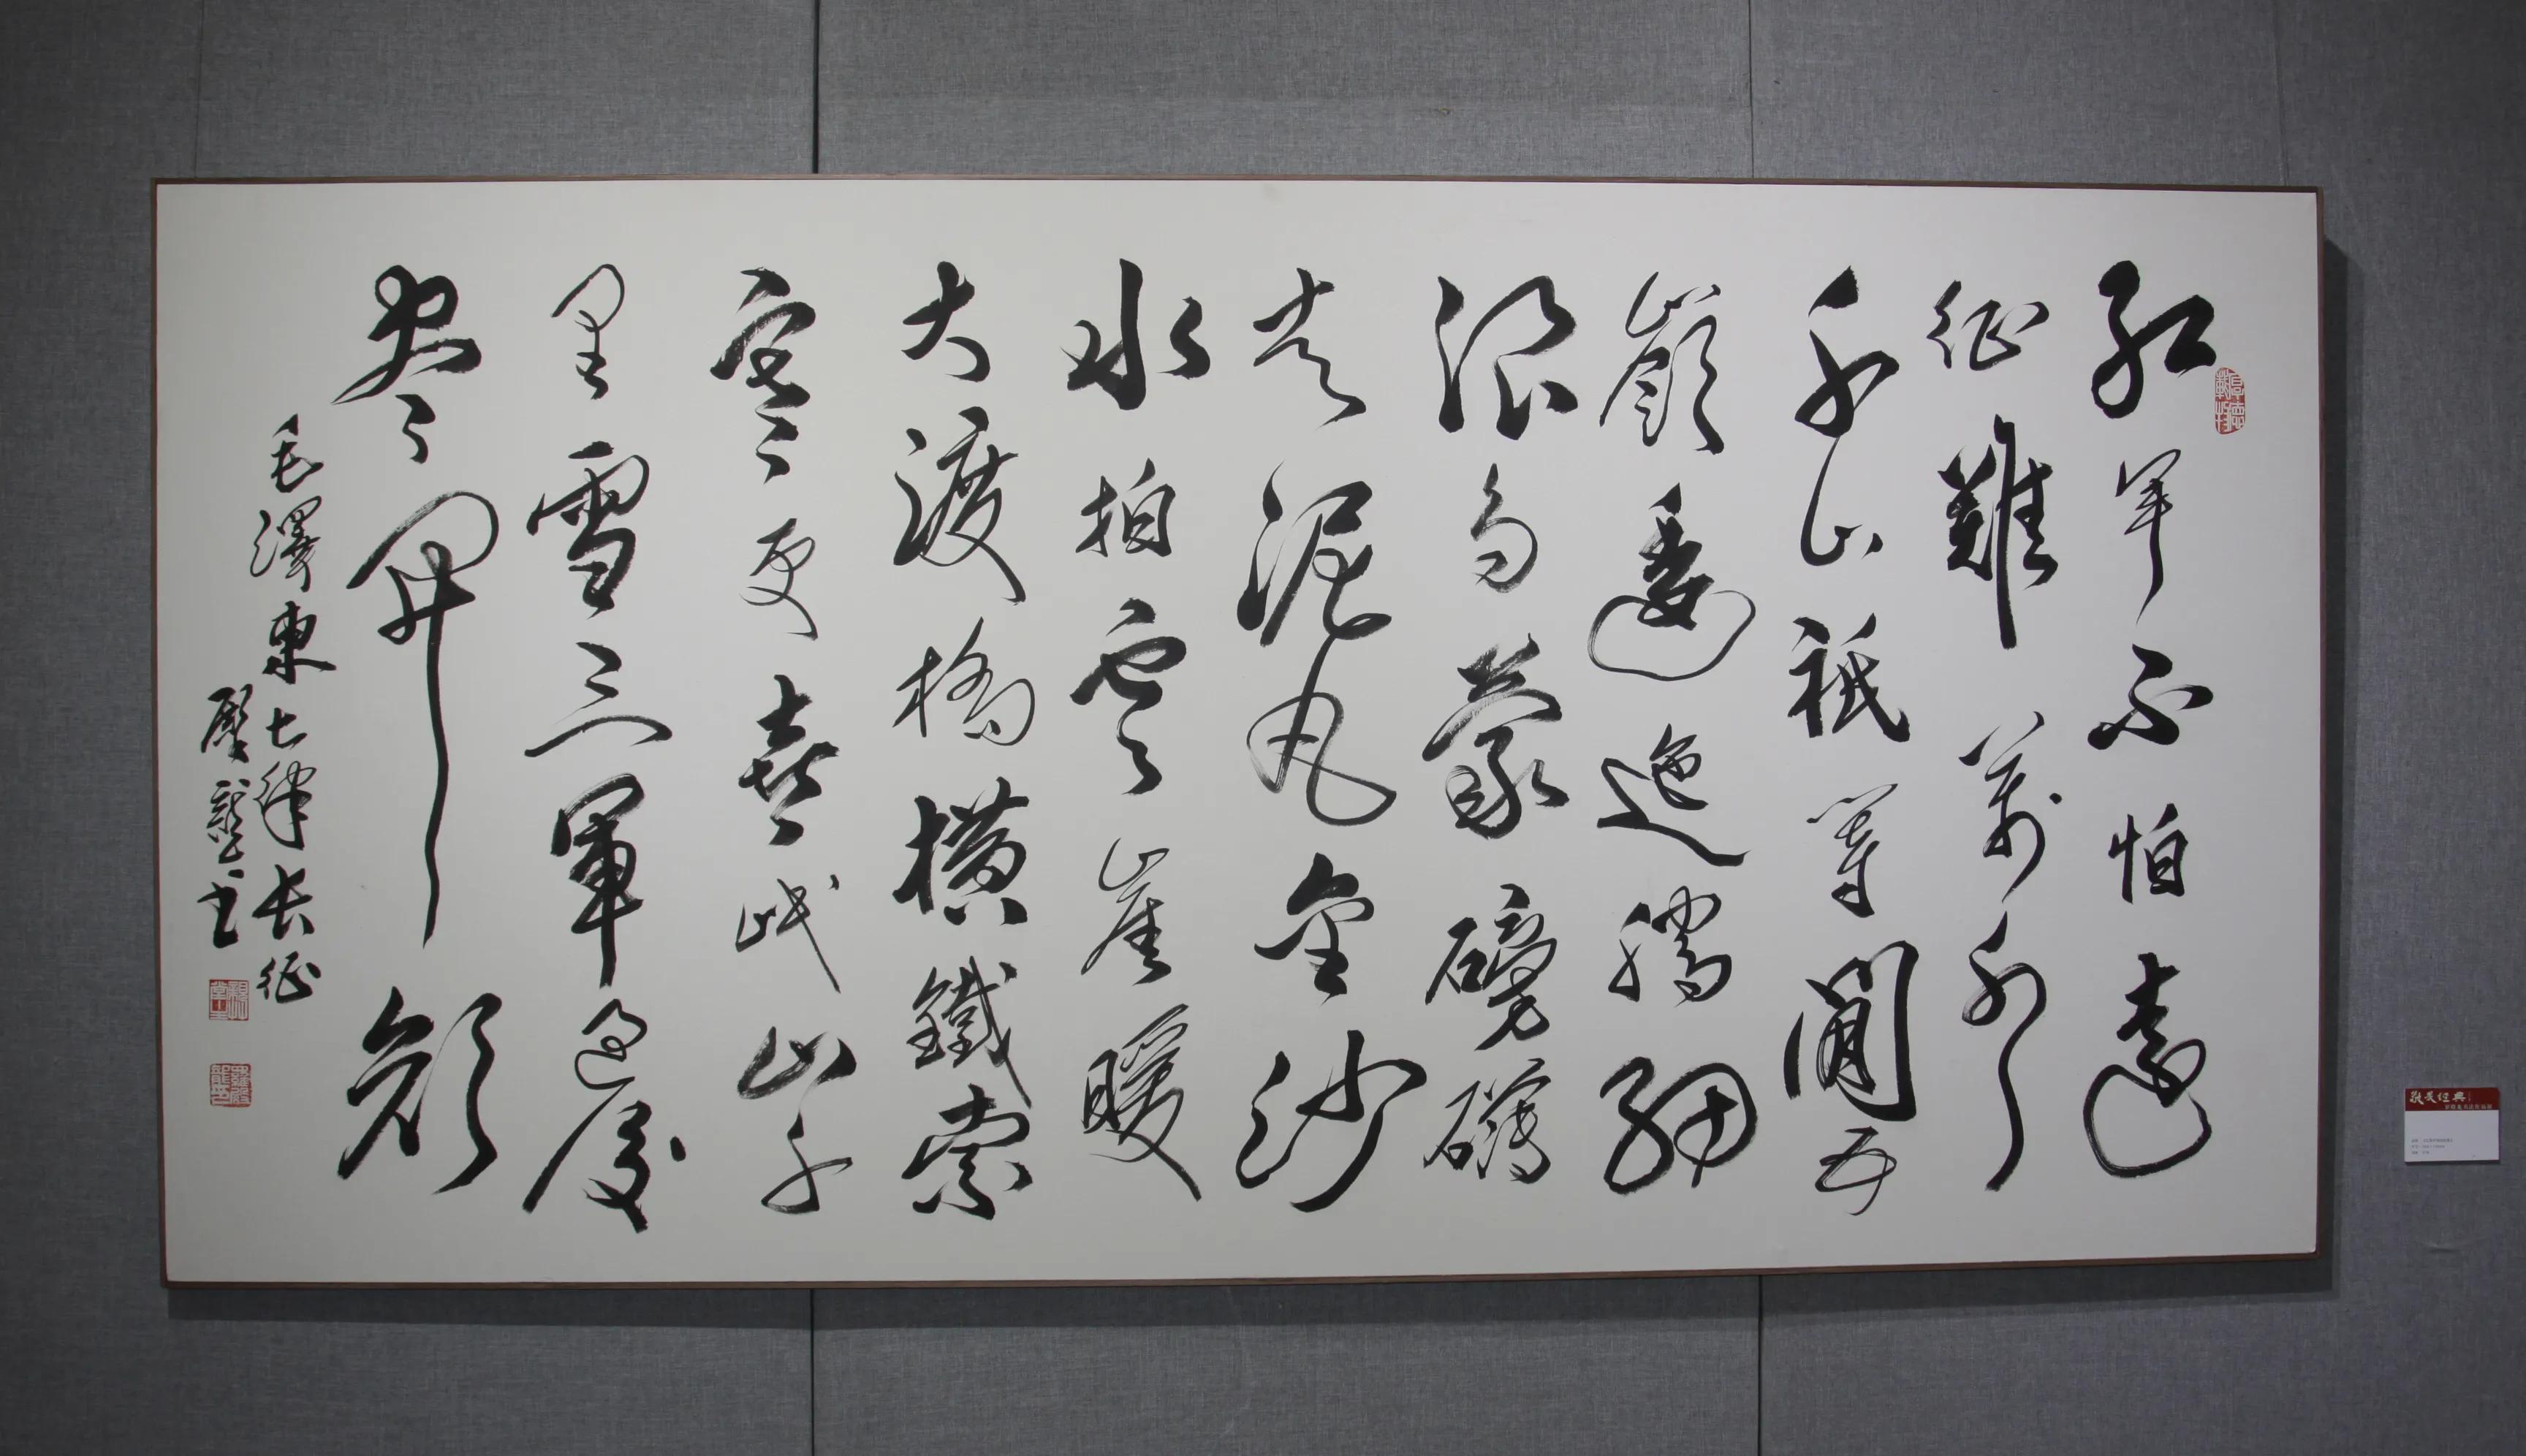 紅軍不怕遠
征難萬水
千山祇等閒五
嶺逶迤騰細
浪烏蒙磅礴
走泥丸金沙
水拍雲崖暖
大渡橋橫鐵索
寒更喜岷山千
里雪三軍過後
盡開顏
毛澤東七律长征
殿龍書
厚德載物